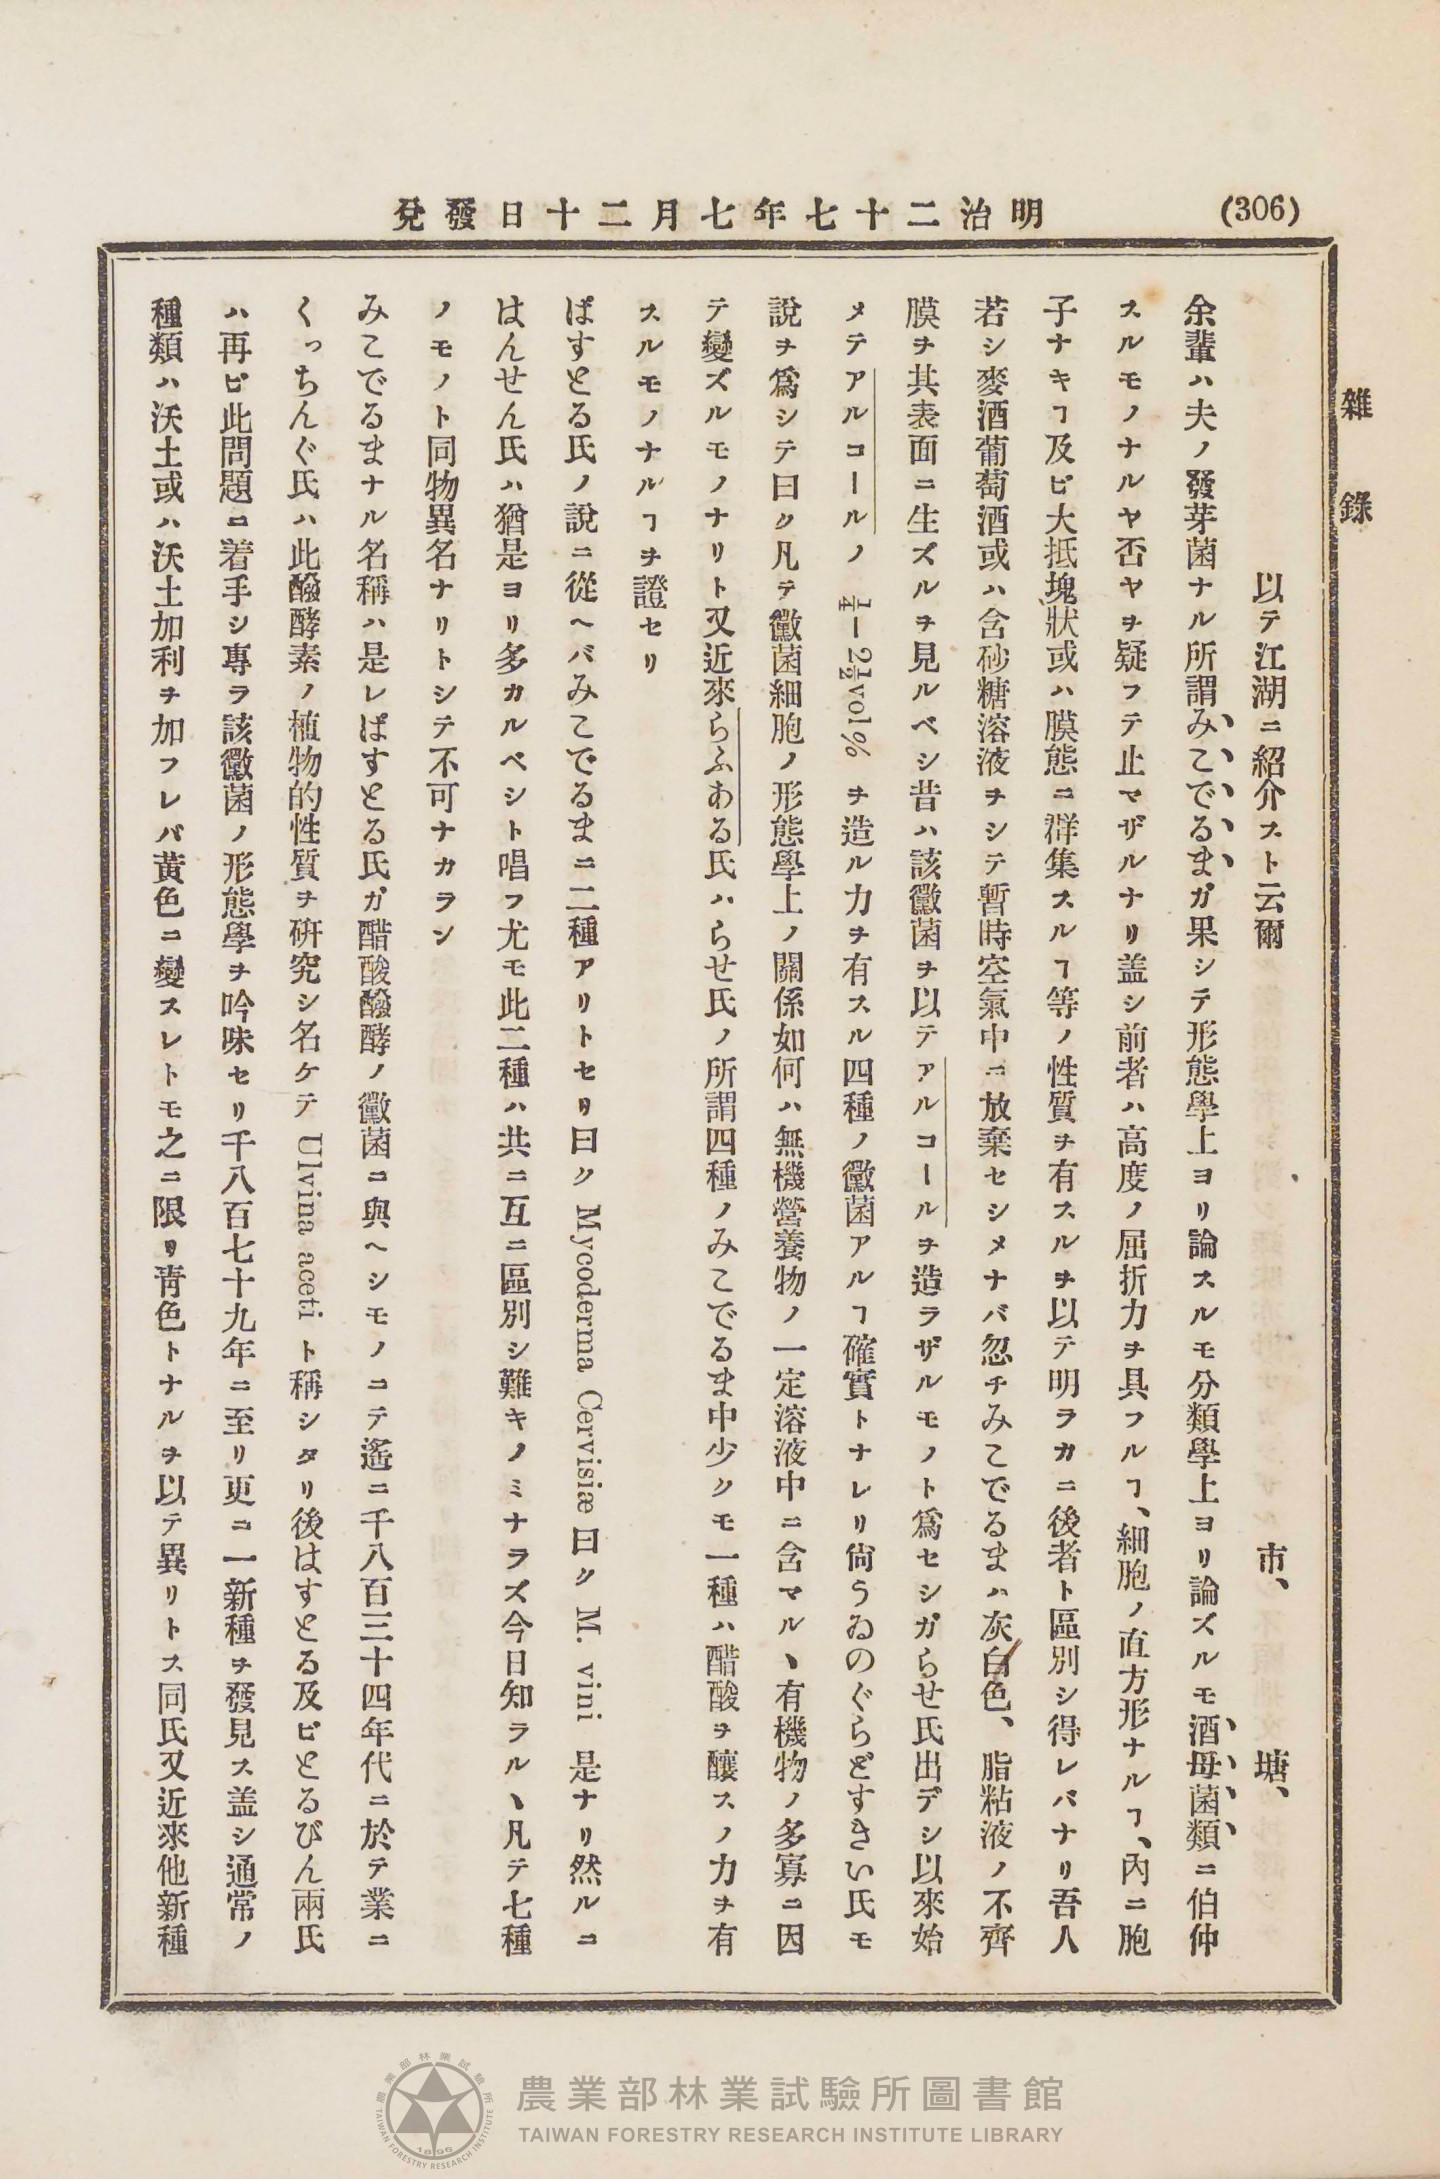 (306)
明治二十七年七月二十日發兌
雜錄
以テ江湖ニ紹介スト云爾　市、塘、
余輩ハ夫ノ發芽菌ナル所謂みこでるまガ果シテ形態學上ヨリ論スルモ分類學上ヨリ論ズルモ酒母菌類ニ伯仲
スルモノナルヤ否ヤヲ疑フテ止マザルナリ盖シ前者ハ高度ノ屈折力ヲ具フルヿ、細胞ノ直方形ナルヿ、內ニ胞
子ナキヿ及ビ大抵塊狀或ハ膜態ニ群集スルヿ等ノ性質ヲ有スルヲ以テ明ラカニ後者ト區別シ得レバナリ吾人
若シ麥酒葡萄酒或ハ含砂糖溶液ヲシテ暫時空氣中ニ放棄セシメナバ忽チみこでるまハ灰白色、脂粘液ノ不齊
膜ヲ其表面ニ生ズルヲ見ルベシ昔ハ該黴菌ヲ以テアルコールヲ造ラザルモノト爲セシガらせ氏出デシ以來始
メテアルコールノ ¼ー2½vol% ヲ造ル力ヲ有スル四種ノ黴菌アルヿ確實トナレリ尙うゐのぐらどすきい氏モ
說ヲ爲シテ曰ク凡テ黴菌細胞ノ形態學上ノ關係如何ハ無機營養物ノ一定溶液中ニ含マルヽ有機物ノ多寡ニ因
テ變ズルモノナリト又近來らふある氏ハらせ氏ノ所謂四種ノみこでるま中少クモ一種ハ醋酸ヲ釀スノ力ヲ有
スルモノナルヿヲ證セリ
ぱすとる氏ノ說ニ從ヘバみこでるまニ二種アリトセリ曰ク Mycoderma Cervisiæ 曰ク M. vini 是ナリ然ルニ
はんせん氏ハ猶是ヨリ多カルベシト唱フ尤モ此二種ハ共ニ互ニ區別シ難キノミナラズ今日知ラルヽ凡テ七種
ノモノト同物異名ナリトシテ不可ナカラン
みこでるまナル名稱ハ是レぱすとる氏ガ醋酸醱酵ノ黴菌ニ與ヘシモノニテ遙ニ千八百三十四年代ニ於テ業ニ
くっちんぐ氏ハ此醱酵素ノ植物的性質ヲ硏究シ名ケテ Ulvina aceti ト稱シタリ後はすとる及ビとるびん兩氏
ハ再ビ此問題ニ着手シ專ラ該黴菌ノ形態學ヲ吟味セリ千八百七十九年ニ至リ更ニ一新種ヲ發見ス盖シ通常ノ
種類ハ沃土或ハ沃土加利ヲ加フレバ黃色ニ變スレトモ之ニ限リ靑色トナルヲ以テ異リトス同氏又近來他新種
農業部林業試驗所圖書館
TAIWAN FORESTRY RESEARCH INSTITUTE LIBRARY
農業部林業試驗所
TAIWAN FORESTRY RESEARCH INSTITUTE
1896